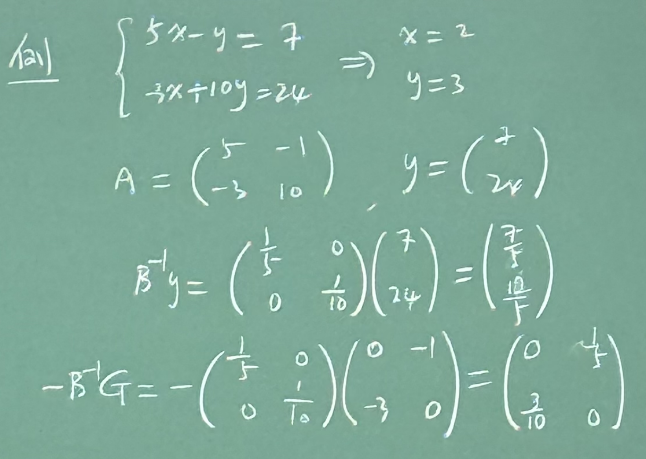 例 { 5x-y=7 ⇒ x=2
-3x+10y=24 y=3
A = ( 5 -1 ; -3 10 ) , y = ( 7 ; 24 )
B⁻¹y = ( 1/5 0 ; 0 1/10 )( 7 ; 24 ) = ( 7/5 ; 12/5 )
-B⁻¹G = -( 1/5 0 ; 0 1/10 )( 0 -1 ; -3 0 ) = ( 0 1/5 ; 3/10 0 )